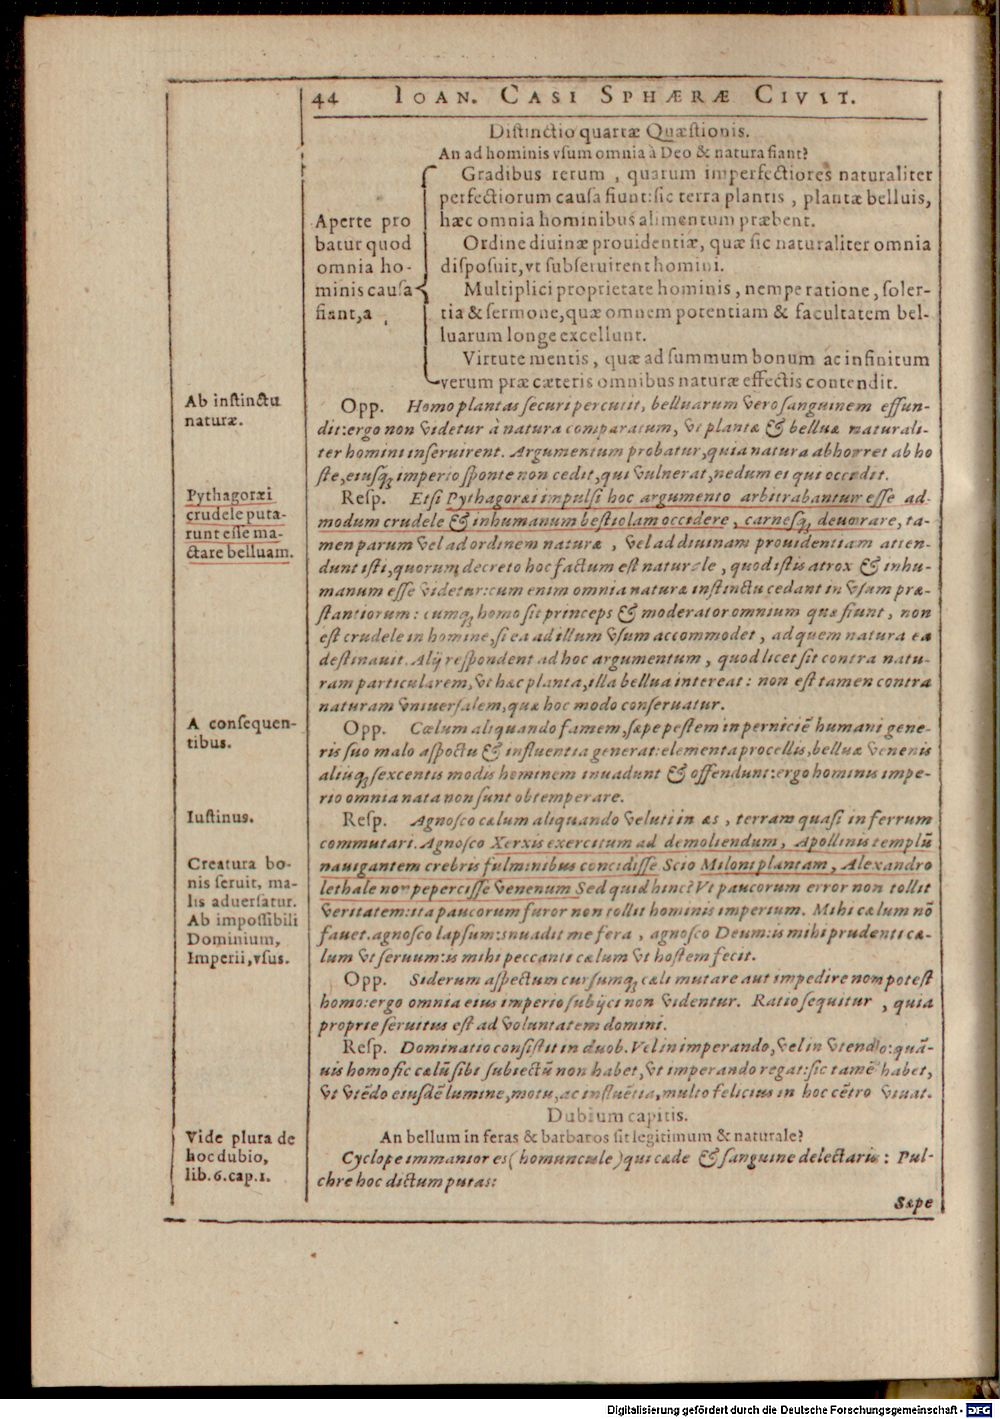 44 IOAN. CASI SPHÆRÆ CIVIT.
Distinctio quartæ Quæstionis.
An ad hominis vsum omnia à Deo & natura fiant?
Aperte pro
batur quod
omnia ho-
minis causa
fiant, a
Gradibus rerum, quarum imperfectiores naturaliter
perfectiorum causa fiunt: sic terra plantis, plantæ belluis,
hæc omnia hominibus alimentum præbent.
Ordine diuinæ prouidentiæ, quæ sic naturaliter omnia
disposuit, vt subseruirent homini.
Multiplici proprietate hominis, nempe ratione, soler-
tia & sermone, quæ omnem potentiam & facultatem bel-
luarum longe excellunt.
Virtute mentis, quæ ad summum bonum ac infinitum
verum præ cæteris omnibus naturæ effectis contendit.
Ab instinctu
naturæ.
Opp. Homo plantas securi percutit, belluarum vero sanguinem effun-
dit: ergo non videtur à natura comparatum, vt plantæ & belluæ naturali-
ter homini inseruirent. Argumentum probatur, quia natura abhorret ab ho
ste, eiusq; imperio sponte non cedit, qui vulnerat, nedum ei qui occidit.
Pythagoræi
crudele puta-
runt esse ma-
ctare belluam.
Resp. Etsi Pythagoræi impulsi hoc argumento arbitrabantur esse ad-
modum crudele & inhumanum bestiolam occidere, carnesq; deuorare, ta-
men parum vel ad ordinem naturæ, vel ad diuinam prouidentiam atten-
dunt isti, quorum decreto hoc factum est naturale, quod istis atrox & inhu-
manum esse videtur: cum enim omnia naturæ instinctu cedant in vsum præ-
stantiorum: cumq; homo sit princeps & moderator omnium quæ fiunt, non
est crudele in homine, si ea ad illum vsum accommodet, ad quem natura ea
destinauit. Alij respondent ad hoc argumentum, quod licet sit contra natu-
ram particularem, vt hæc planta, illa bellua intereat: non est tamen contra
naturam vniuersalem, quæ hoc modo conseruatur.
A consequen-
tibus.
Opp. Cœlum aliquando famem, sæpe pestem in perniciẽ humani gene-
ris suo malo aspectu & influentia generat: elementa procellis, belluæ venenis
aliisq; sexcentis modis hominem inuadunt & offendunt: ergo hominis impe-
rio omnia nata non sunt obtemperare.
Iustinus.
Resp. Agnosco cælum aliquando veluti in æs, terram quasi in ferrum
commutari. Agnosco Xerxis exercitum ad demoliendum, Apollinis templũ
nauigantem crebris fulminibus concidisse Scio Miloni plantam, Alexandro
lethale non pepercisse venenum Sed quid hinc? Vt paucorum error non tollit
Creatura bo-
nis seruit, ma-
lis aduersatur.
Ab impossibili
Dominium,
Imperii, vsus.
veritatem: ita paucorum furor non tollit hominis imperium. Mihi cælum nõ
fauet. agnosco lapsum: inuadit me fera, agnosco Deum: is mihi prudenti cæ-
lum vt seruum: is mihi peccanti cælum vt hostem fecit.
Opp. Siderum aspectum cursumq; cæli mutare aut impedire non potest
homo: ergo omnia eius imperio subijci non videntur. Ratio sequitur, quia
proprie seruitus est ad voluntatem domini.
Resp. Dominatio consistit in duob. Vel in imperando, vel in vtendo: quã-
uis homo sic cælũ sibi subiectũ non habet, vt imperando regat: sic tamẽ habet,
vt vtẽdo eiusdẽ lumine, motu, ac influẽtia, multo felicius in hoc cẽtro viuat.
Dubium capitis.
An bellum in feras & barbaros sit legitimum & naturale?
Vide plura de
hoc dubio,
lib. 6. cap. 1.
Cyclope immanior es (homuncule) qui cæde & sanguine delectaris: Pul-
chre hoc dictum putas:
Sæpe
Digitalisierung gefördert durch die Deutsche Forschungsgemeinschaft - DFG